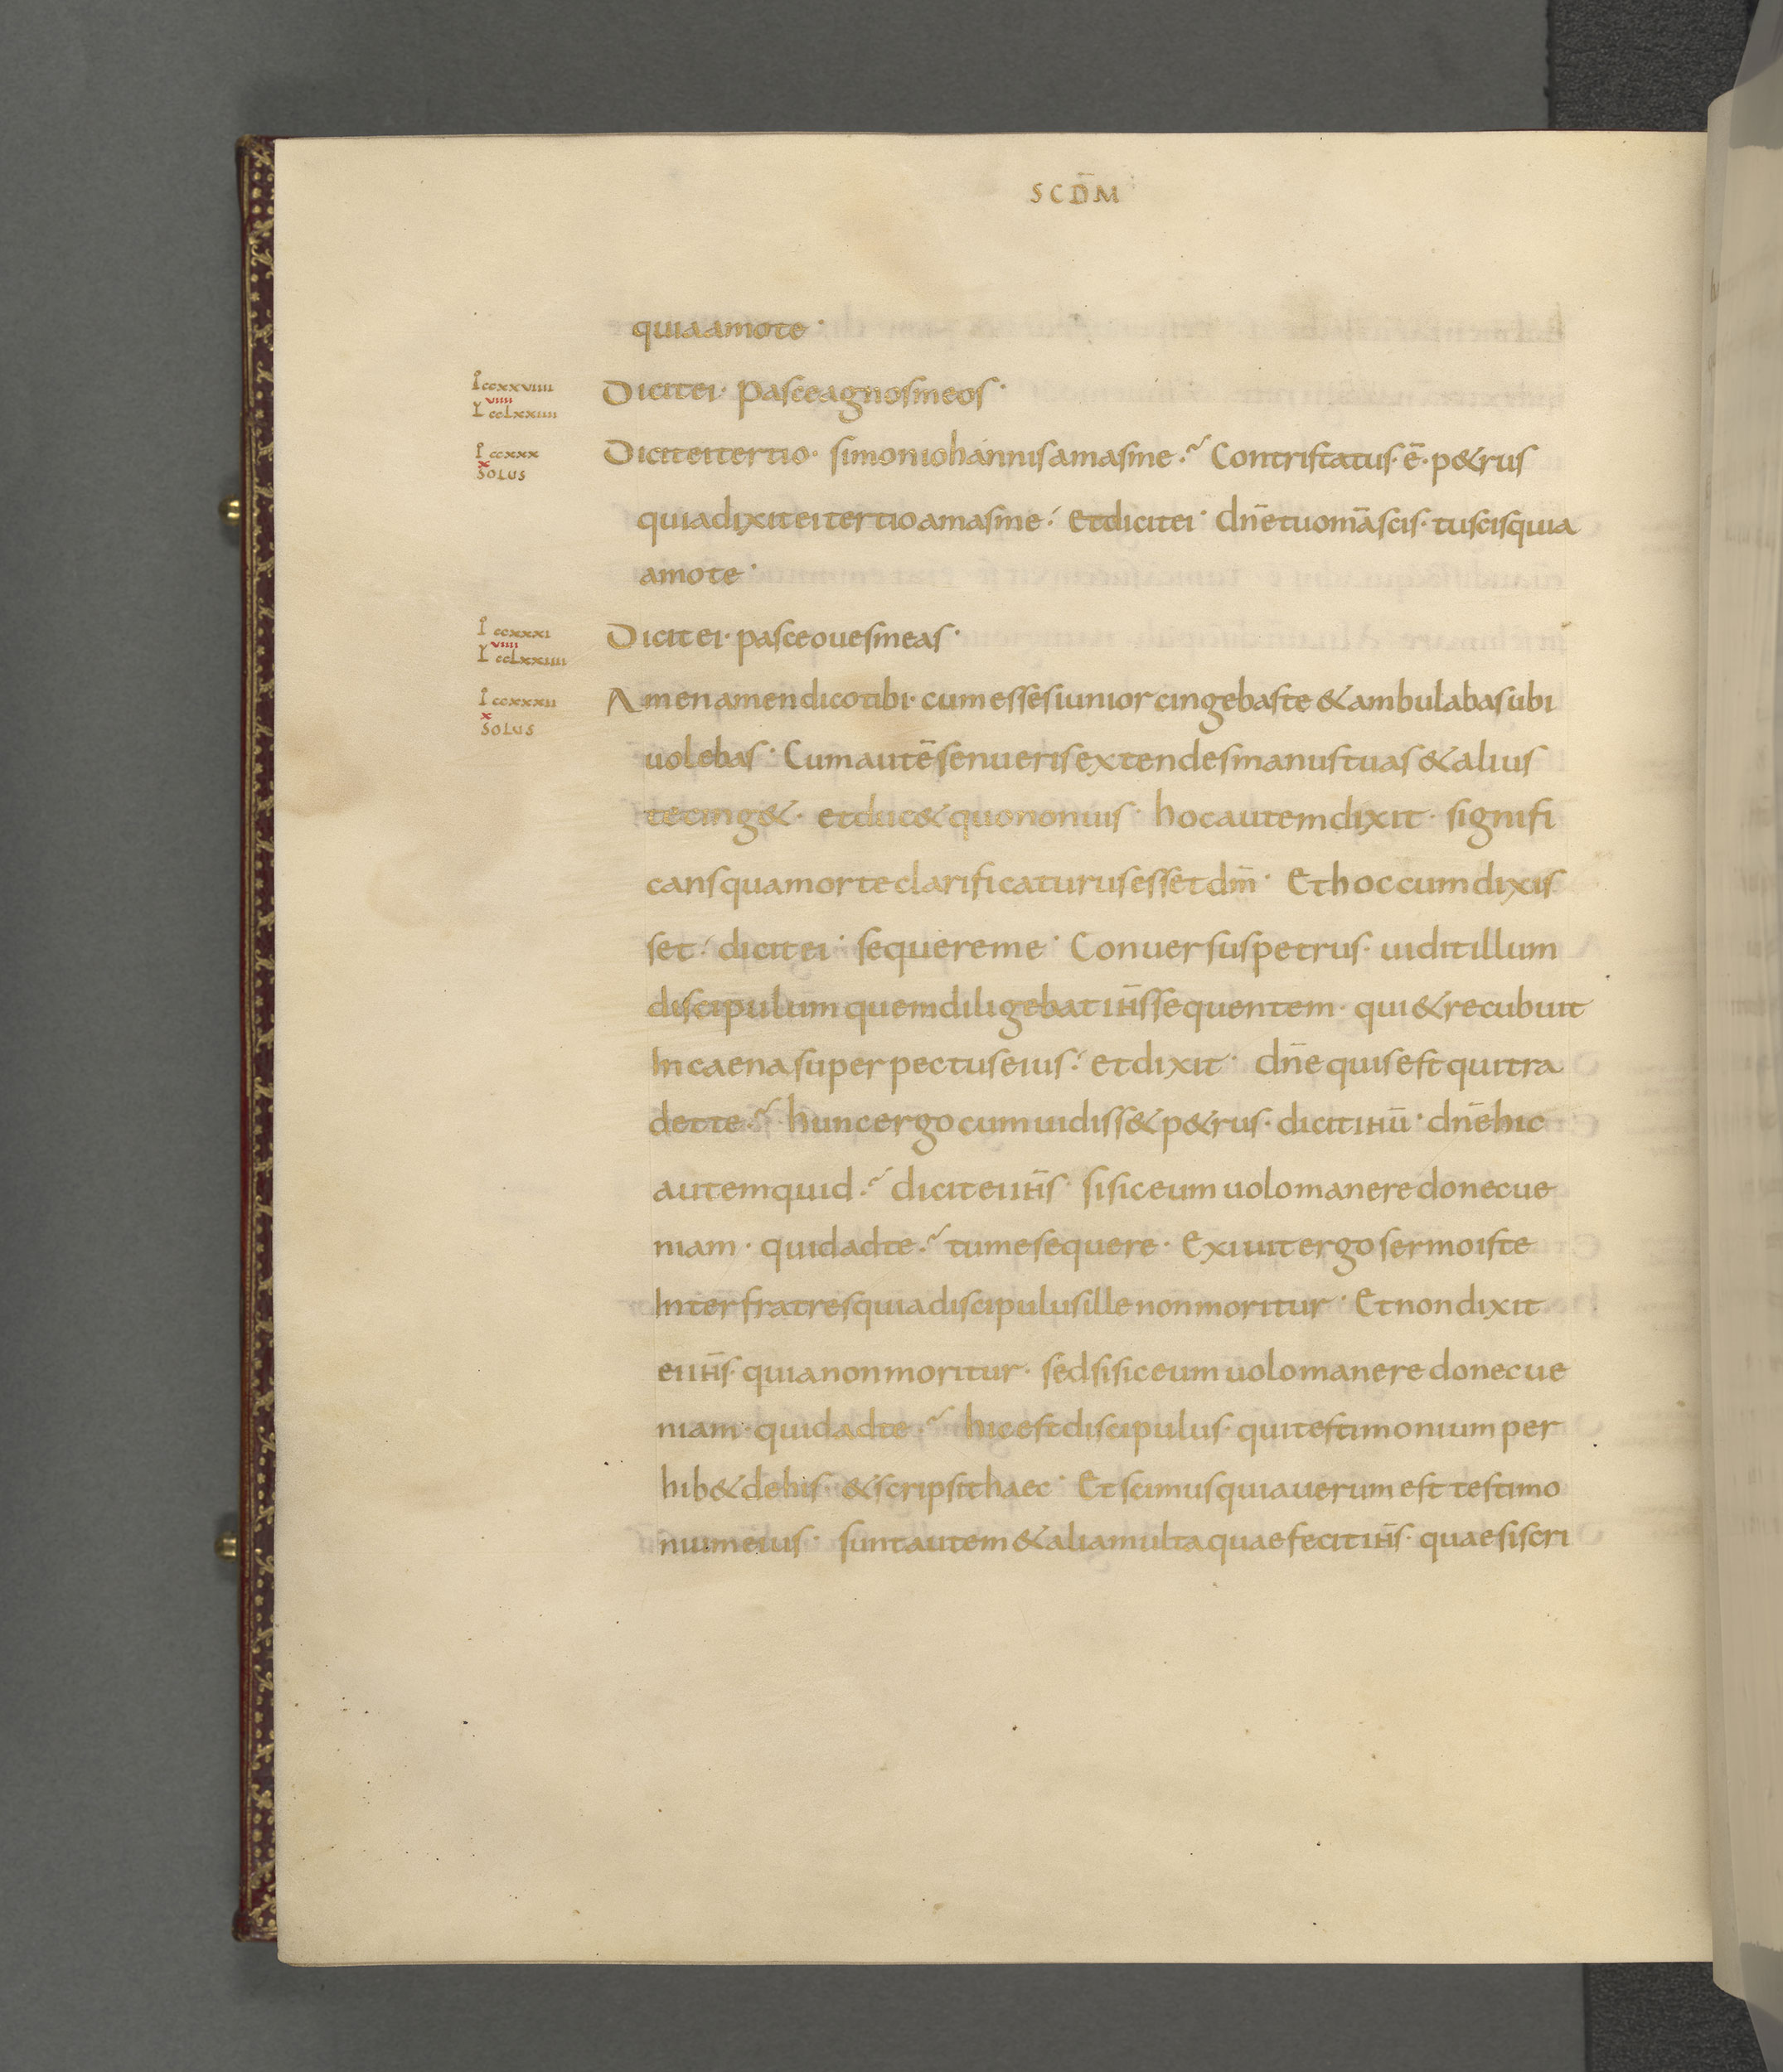 SCDM̄
quiaamote·
I̊ ccxxviiii
viiii
L̊ cclxxiiii
Dicitei· pasceagnosmeos·
I̊ ccxxx
x
SOLUS
Diciteitertio· simoniohannisamasme·? Contristatus·ē·p&rus
quiadixiteitertioamasme· Etdicitei· dn̄etuomāscis· tuscisquia
amote·
I̊ ccxxxi
viiii
L̊ cclxxiiii
Dicitei· pasceouesmeas·
I̊ ccxxxii
x
SOLUS
Amenamendicotibi· cumessesiunior cingebaste &ambulabasubi
uolebas· Cumautēsenuerisextendesmanustuas &alius
tecing&· etduc& quononuis· hocautemdixit· signifi
cansquamorteclarificaturusessetdm̄· Ethoccumdixis
set· dicitei· sequereme· Conuersuspetrus· uiditillum
discipulumquemdiligebatih̄ssequentem· qui&recubuit
Incaenasuperpectuseius· etdixit· dn̄equisestquitra
dette·? huncergocumuidiss&p&rus· dicitihū· dn̄ehic
autemquid·? diciteiih̄s· sisiceumuolomaneredonecue
niam· quidadte·? tumesequere· Exiuitergosermoiste
Interfratresquiadiscipulusillenonmoritur· Etnondixit
eiih̄s· quianonmoritur· sedsisiceumuolomaneredonecue
niam· quidadte·? hicestdiscipulus· quitestimoniumper
hib&dehis· &scripsithaec· Etscimusquiauerumest testimo
niumeius· suntautem&aliamultaquaefecitih̄s· quaesiscri